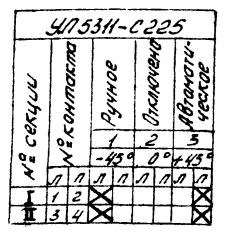 УП5311-С225
№ секции
№ контакта
Ручное
Отключено
Автомати-
ческое
1 2 3
-45° 0° +45°
л п л п л п л п
I 1 2
II 3 4